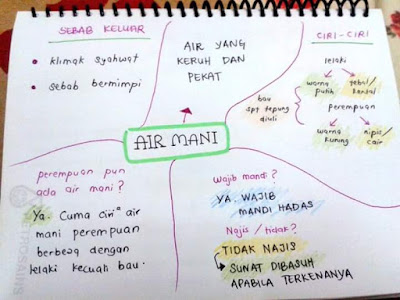 SEBAB KELUAR
• klimak syahwat
• sebab bermimpi
AIR YANG
KERUH DAN
PEKAT
CIRI-CIRI
lelaki
warna putih
tebal/kental
perempuan
warna kuning
nipis/cair
bau
spt tepung
diuli
AIR MANI
perempuan pun
ada air mani ?
Ya. Cuma ciri² air
mani perempuan
berbeza dengan
lelaki kecuali bau.
Wajib mandi ?
YA. WAJIB
MANDI HADAS
Najis / tidak ?
TIDAK NAJIS
SUNAT DIBASUH
APABILA TERKENANYA